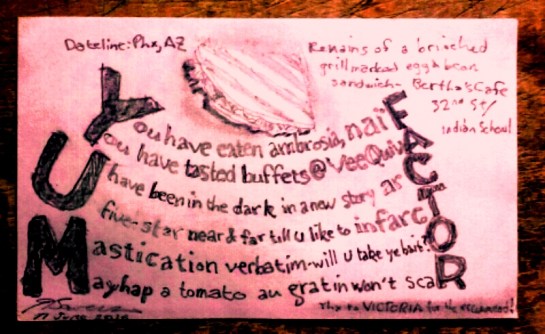 Dateline: Phx, AZ
Remains of a brioched
grillmarked egg & bean
sandwich - Bertha's Cafe
32nd St/
Indian School
YUM
FACTOR
You have eaten ambrosia, naïF
You have tasted buffets @ VeeQuivA
have been in the dark in a new story as
five-star near & far till U like to infarcT
Mastication verbatim-will u take ye bait?
Mayhap a tomato au gratin won't scaR
Thx to VICTORIA for the
17 June